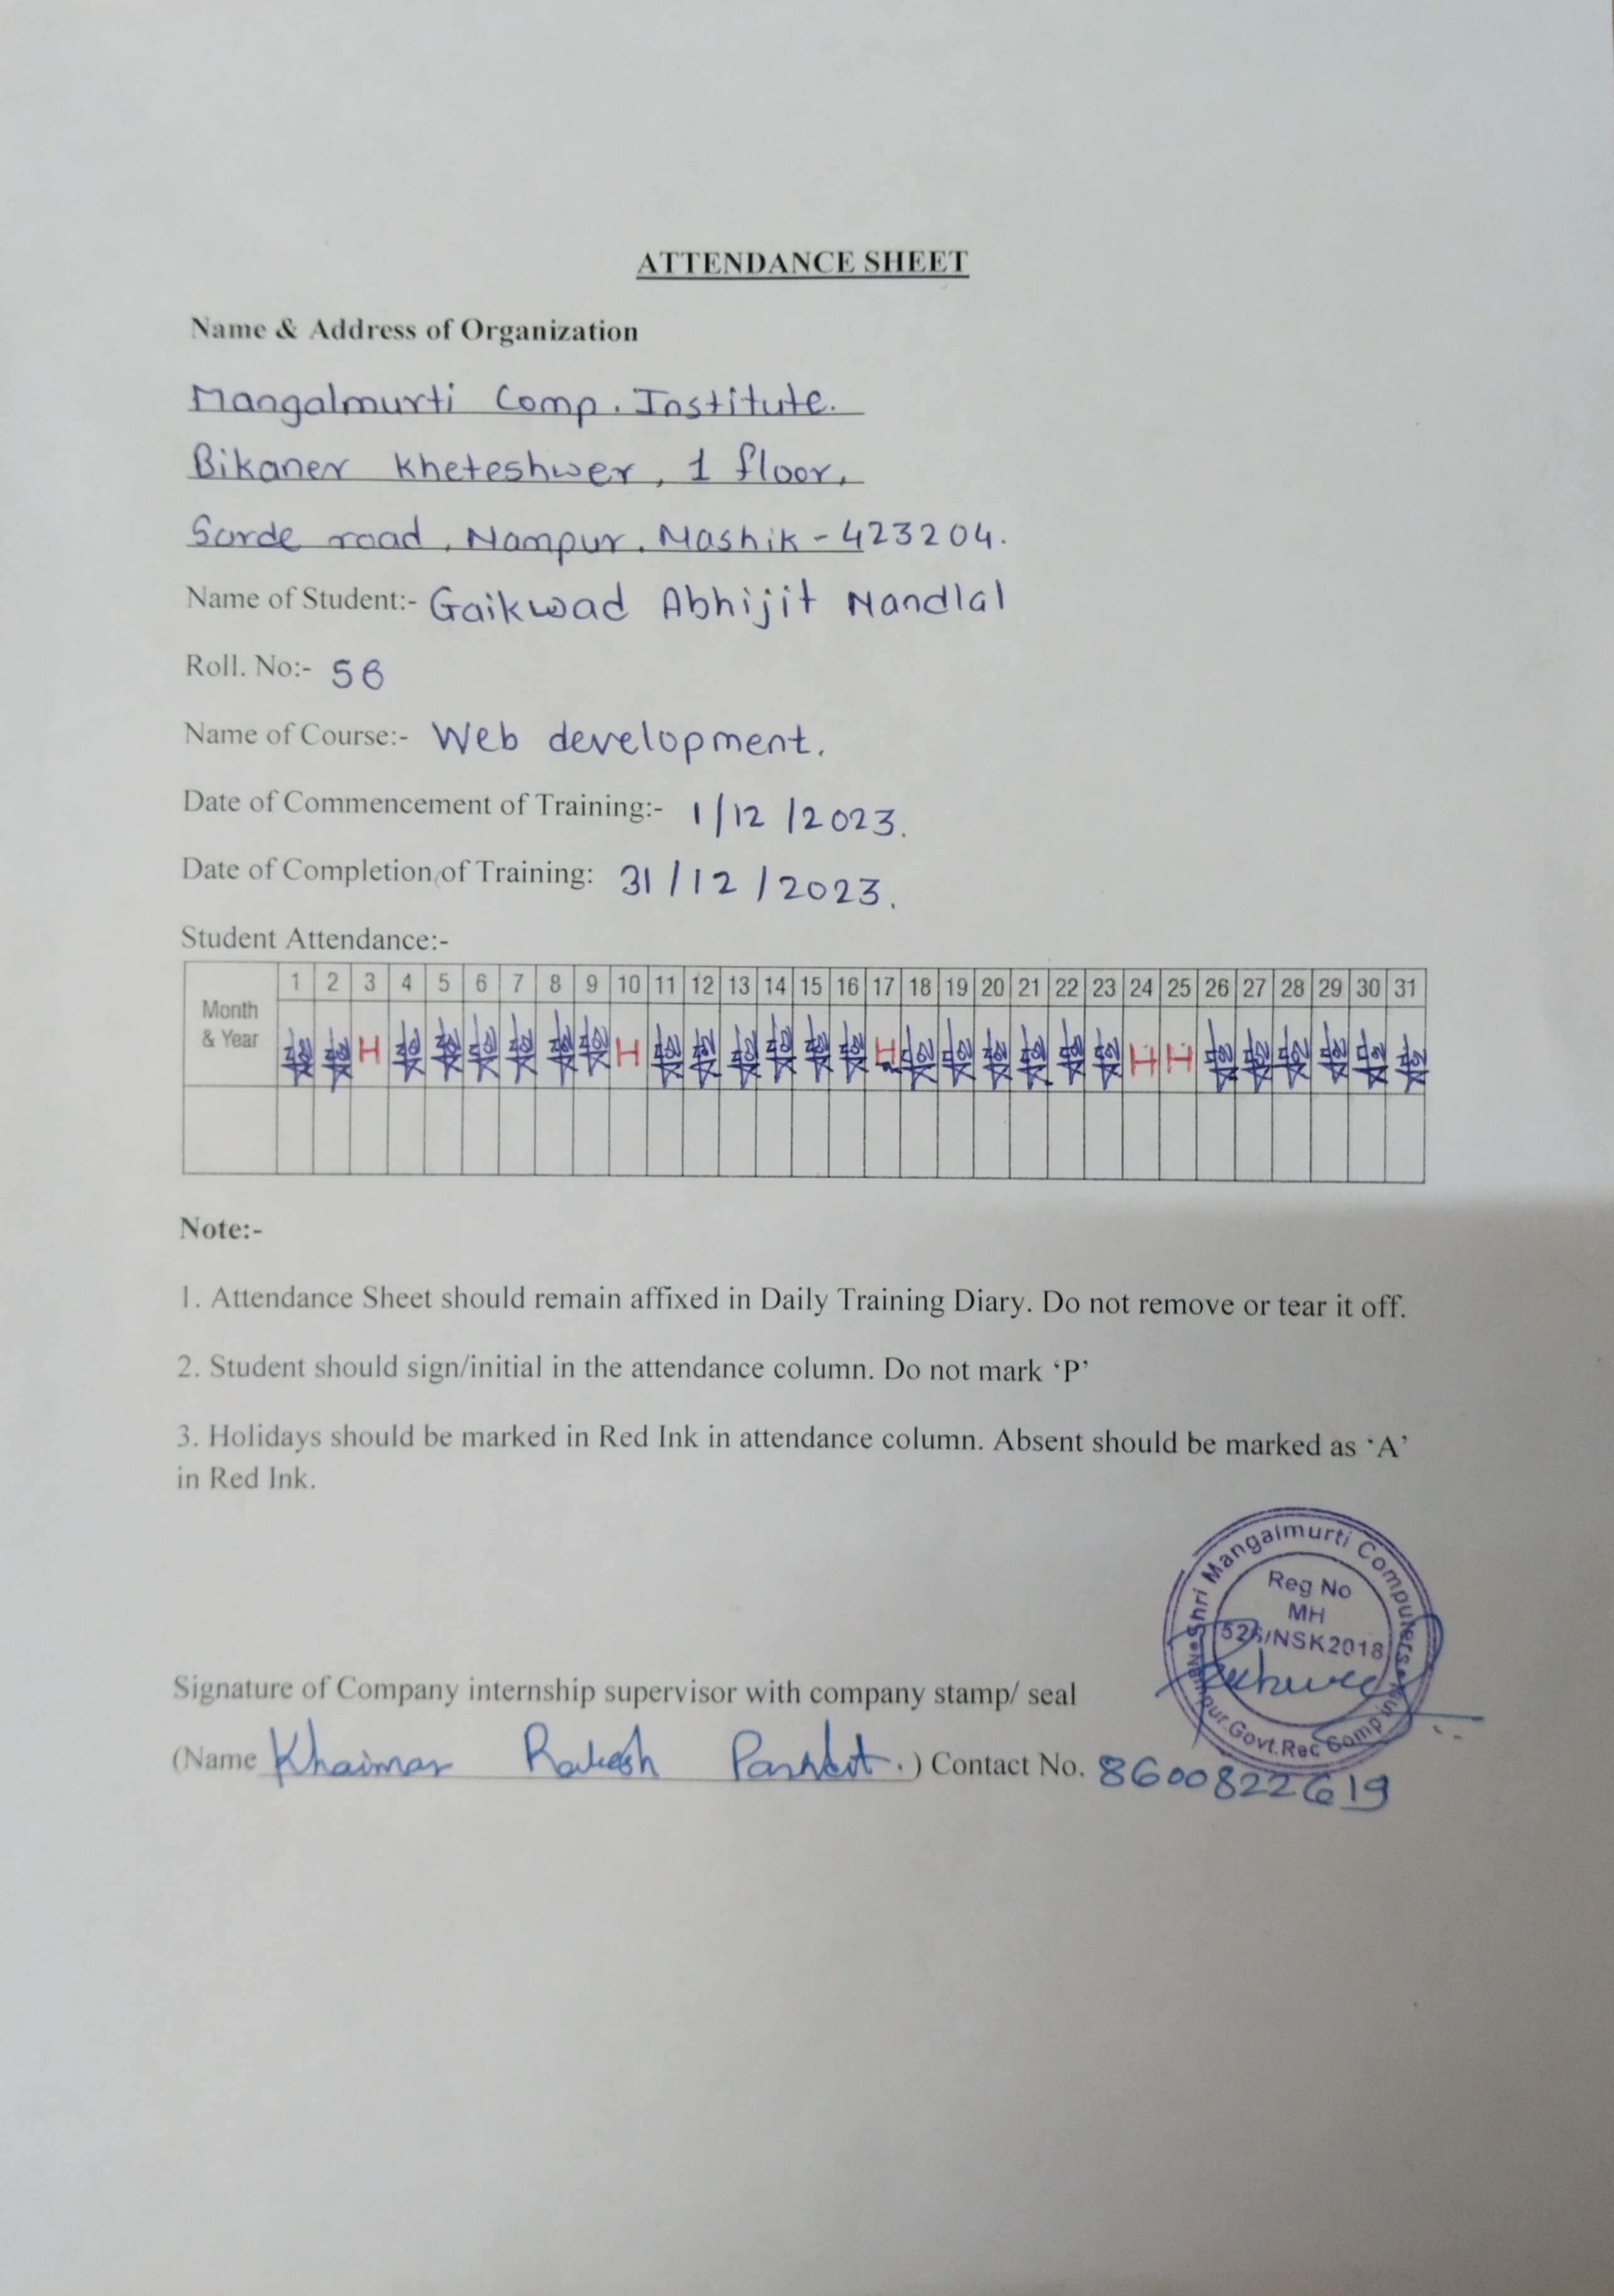 ATTENDANCE SHEET
Name & Address of Organization
Mangalmurti Comp. Institute.
Bikaner kheteshwer, 1 floor,
Sarde road, Nampur. Nashik - 423204.
Name of Student:- Gaikwad Abhijit Nandlal
Roll. No:- 56
Name of Course:- Web development.
Date of Commencement of Training:- 1/12/2023.
Date of Completion of Training: 31/12/2023.
Student Attendance:-
Month & Year 1 2 3 4 5 6 7 8 9 10 11 12 13 14 15 16 17 18 19 20 21 22 23 24 25 26 27 28 29 30 31
H H H H H
Note:-
1. Attendance Sheet should remain affixed in Daily Training Diary. Do not remove or tear it off.
2. Student should sign/initial in the attendance column. Do not mark ‘P’
3. Holidays should be marked in Red Ink in attendance column. Absent should be marked as ‘A’
in Red Ink.
Shri Mangalmurti Computers
Reg No
MH
526/NSK2018
Nampur.Govt.Rec Comp ins
Signature of Company internship supervisor with company stamp/ seal
(Name Khairnar Rakesh .) Contact No. 8600822619